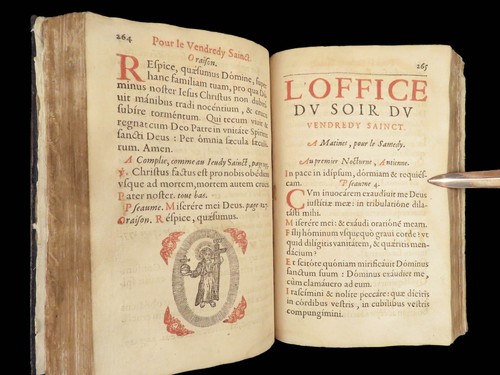 264
Pour le Vendredy Sainct.
Oraison.
REspice, quæsumus Dòmine, super
hanc familiam tuam, pro qua Dó-
minus noster Iesus Christus non dubi-
uit mánibus tradi nocéntium, & crucis
subíre torméntum. Qui tecum viuit &
regnat cum Deo Patre in vnitáte Spíritus
sancti Deus : Per ómnia sæcula sæcul-
rum. Amen.
A Complie, comme au Ieudy Sainct, page
℣. Christus factus est pro nobis obédiens
vsque ad mortem, mortem autem crucis.
Pater noster. tout bas.
Pseaume. Miserére mei Deus. page
Oraison. Réspice, quæsumus.
265
L'OFFICE
DV SOIR DV
VENDREDY SAINCT.
A Matines, pour le Samedy.
Au premier Nocturne, Antienne.
In pace in idípsum, dórmiam & requiés-
cam. Pseaume 4.
CVm inuocárem exaudíuit me Deus
iustítiæ meæ: in tribulatióne dila-
tásti mihi.
Miserére mei: & exáudi oratiónem meam.
Fílij hóminum vsquequò graui corde: vt
quid dilígitis vanitátem, & quæritis men-
dácium?
Et scitóte quóniam mirificáuit Dóminus
sanctum suum : Dóminus exáudiet me,
cùm clamáuero ad eum.
Irascímini & nolíte peccáre: quæ dícitis
in córdibus vestris, in cubílibus vestris
compungímini.